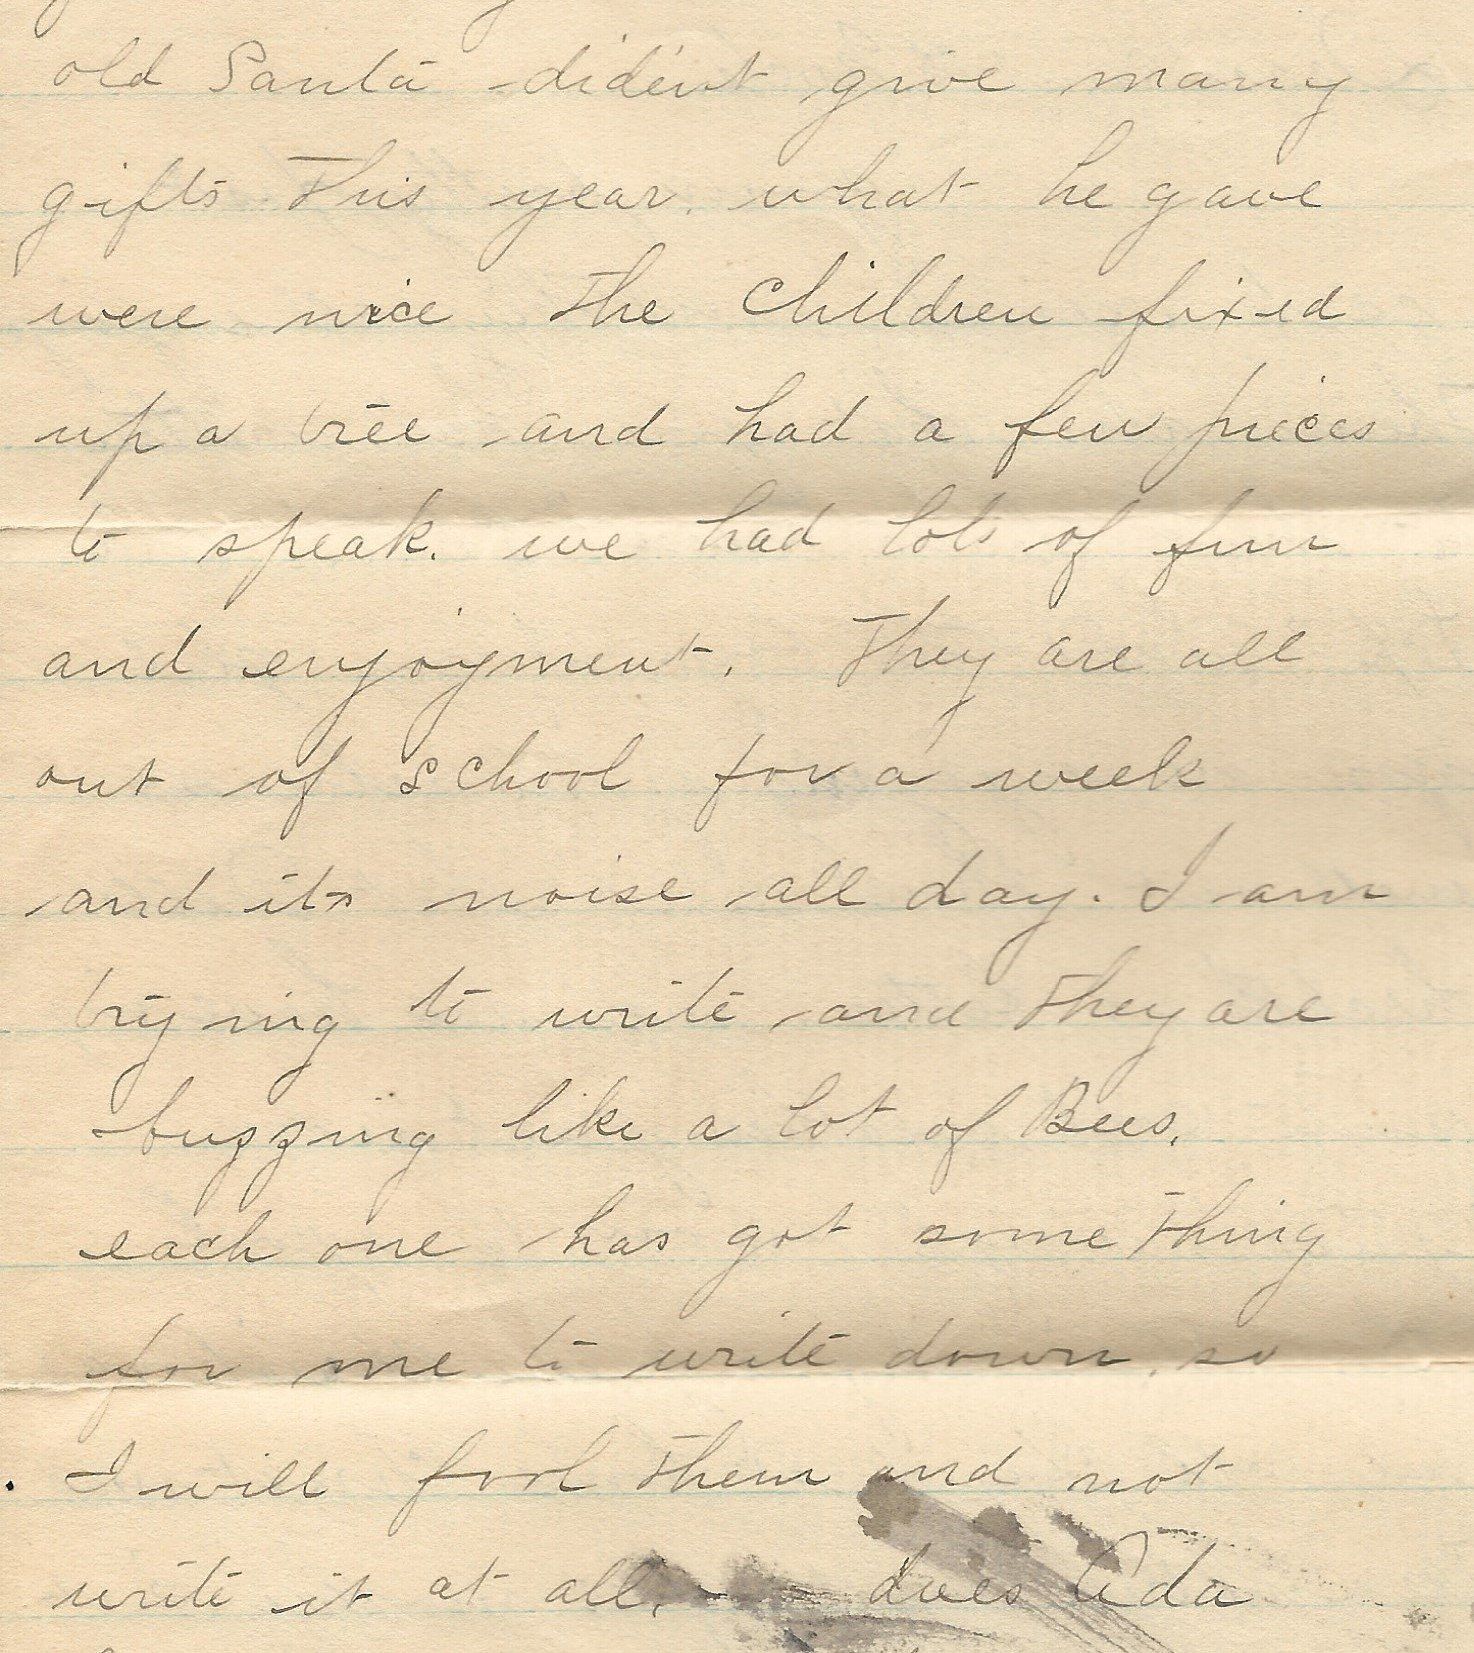 old Santa dident give many
gifts this year. what he gave
were nice the children fixed
up a tree and had a few pieces
to speak. we had lots of fun
and enjoyment. They are all
out of school for a week
and its noise all day. I am
trying to write and they are
buzzing like a lot of Bees.
each one has got some thing
for me to write down. so
I will fool them and not
write it at all. does Ada